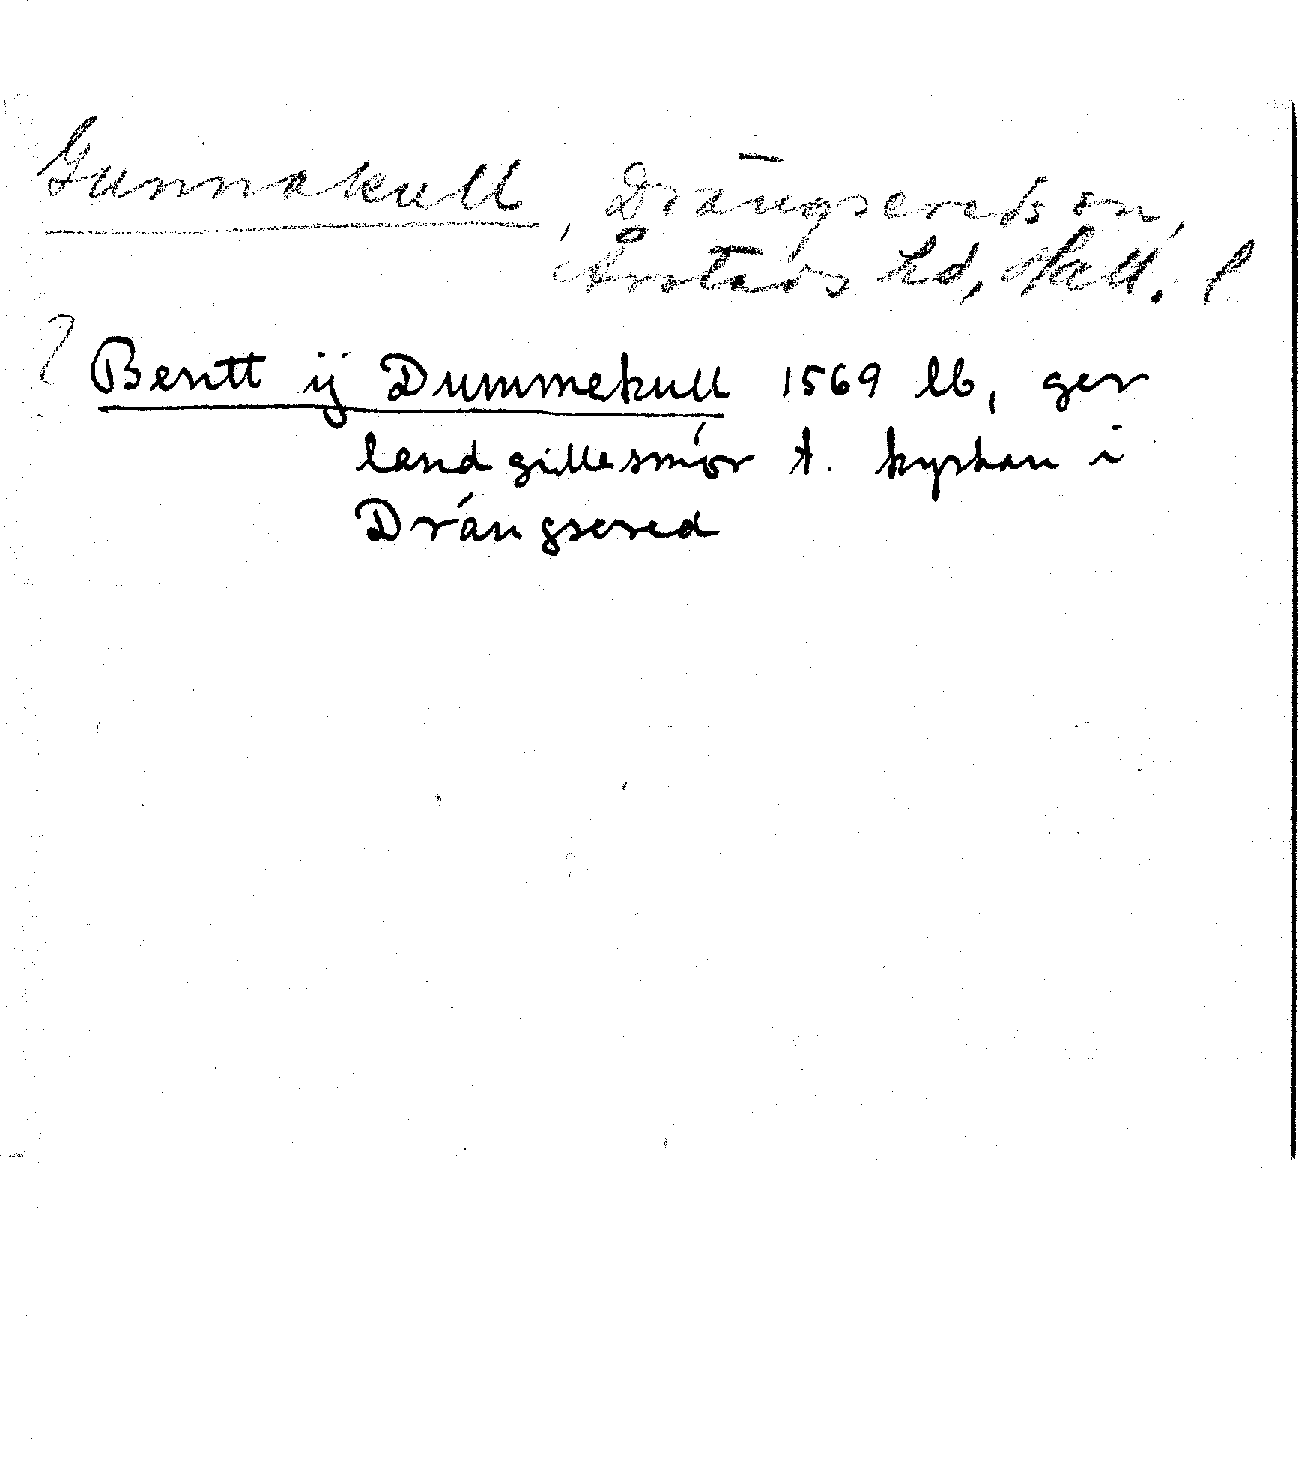 Gunnakull, Drängsereds sn,
Årstads hd, Hall. l
? Bentt ij Dummekull 1569 lb, ger
landgillesmör t. kyrkan i
Drängsered